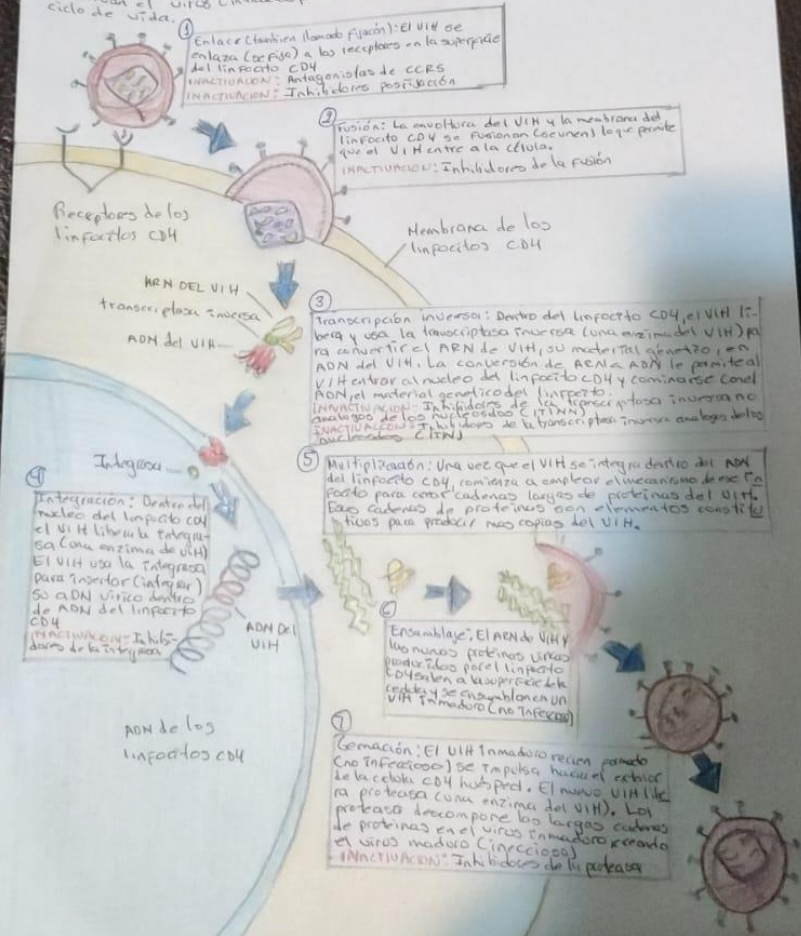 ciclo de vida.
①
Enlace (tambien llamado fijación): El VIH se
enlaza (se fija) a los receptores en la superficie
del linfocito CD4
INACTIVACION: Antagonistas de CCR5
INACTIVACION: Inhibidores posfijación
②
Fusión: La envoltura del VIH y la membrana del
linfocito CD4 se fusionan (se unen) lo que permite
que el VIH entre a la célula.
INACTIVACION: Inhibidores de la fusión
Receptores de los
linfocitos CD4
Membrana de los
linfocitos CD4
ARN DEL VIH
transcriptasa inversa
ADN del VIH
③
Transcripción inversa: Dentro del linfocito CD4, el VIH li-
bera y usa la transcriptasa inversa (una enzima del VIH) pa
ra convertir el ARN de VIH, su material genetico, en
ADN del VIH. La conversión de ARN a ADN le permite al
VIH entrar al nucleo del linfocito CD4 y cominarse con el
ADN, el material genetico del linfocito.
INNACTIVACION: Inhibidores de la transcriptasa inversa no
analogos de los nucleosidos (ITINN)
INACTIVACCION: Inhibidores de la transcriptasa inversa analogos de los
nucleosidos (ITIN)
Integrasa
④
Integración: Dentro del
nucleo del linfocito CD4
el VIH libera la integra-
sa (una enzima de VIH)
El VIH usa la integrasa
para insertar (integrar)
su ADN vírico dentro
de ADN del linfocito
CD4
INACTIVACION: Inhibi-
dores de la integrasa
ADN Del
VIH
ADN de los
linfocitos CD4
⑤
Multiplicación: Una vez que el VIH se integra dentro del ADN
del linfocito CD4, comienza a emplear el mecanismo de ese lin
focito para crear cadenas largas de proteinas del VIH.
Esas cadenas de proteinas son elementos constitu
tivos para producir mas copias del VIH.
⑥
Ensamblaje: El ARN de VIH y
las nuevas proteinas viricas
producidas por el linfocito
CD4 salen a la superficie de la
celula y se ensamblan en un
VIH inmaduro (no infeccioso)
⑦
Gemación: El VIH inmaduro recien formado
(no infeccioso) se impulsa hacia el exterior
de la celula CD4 husped. El nuevo VIH libe
ra proteasa (una enzima del VIH). La
proteasa descompone las largas cadenas
de proteinas en el virus inmaduro, creando
el virus maduro (ineccioso)
INACTIVACION: Inhibidores de la proteasa